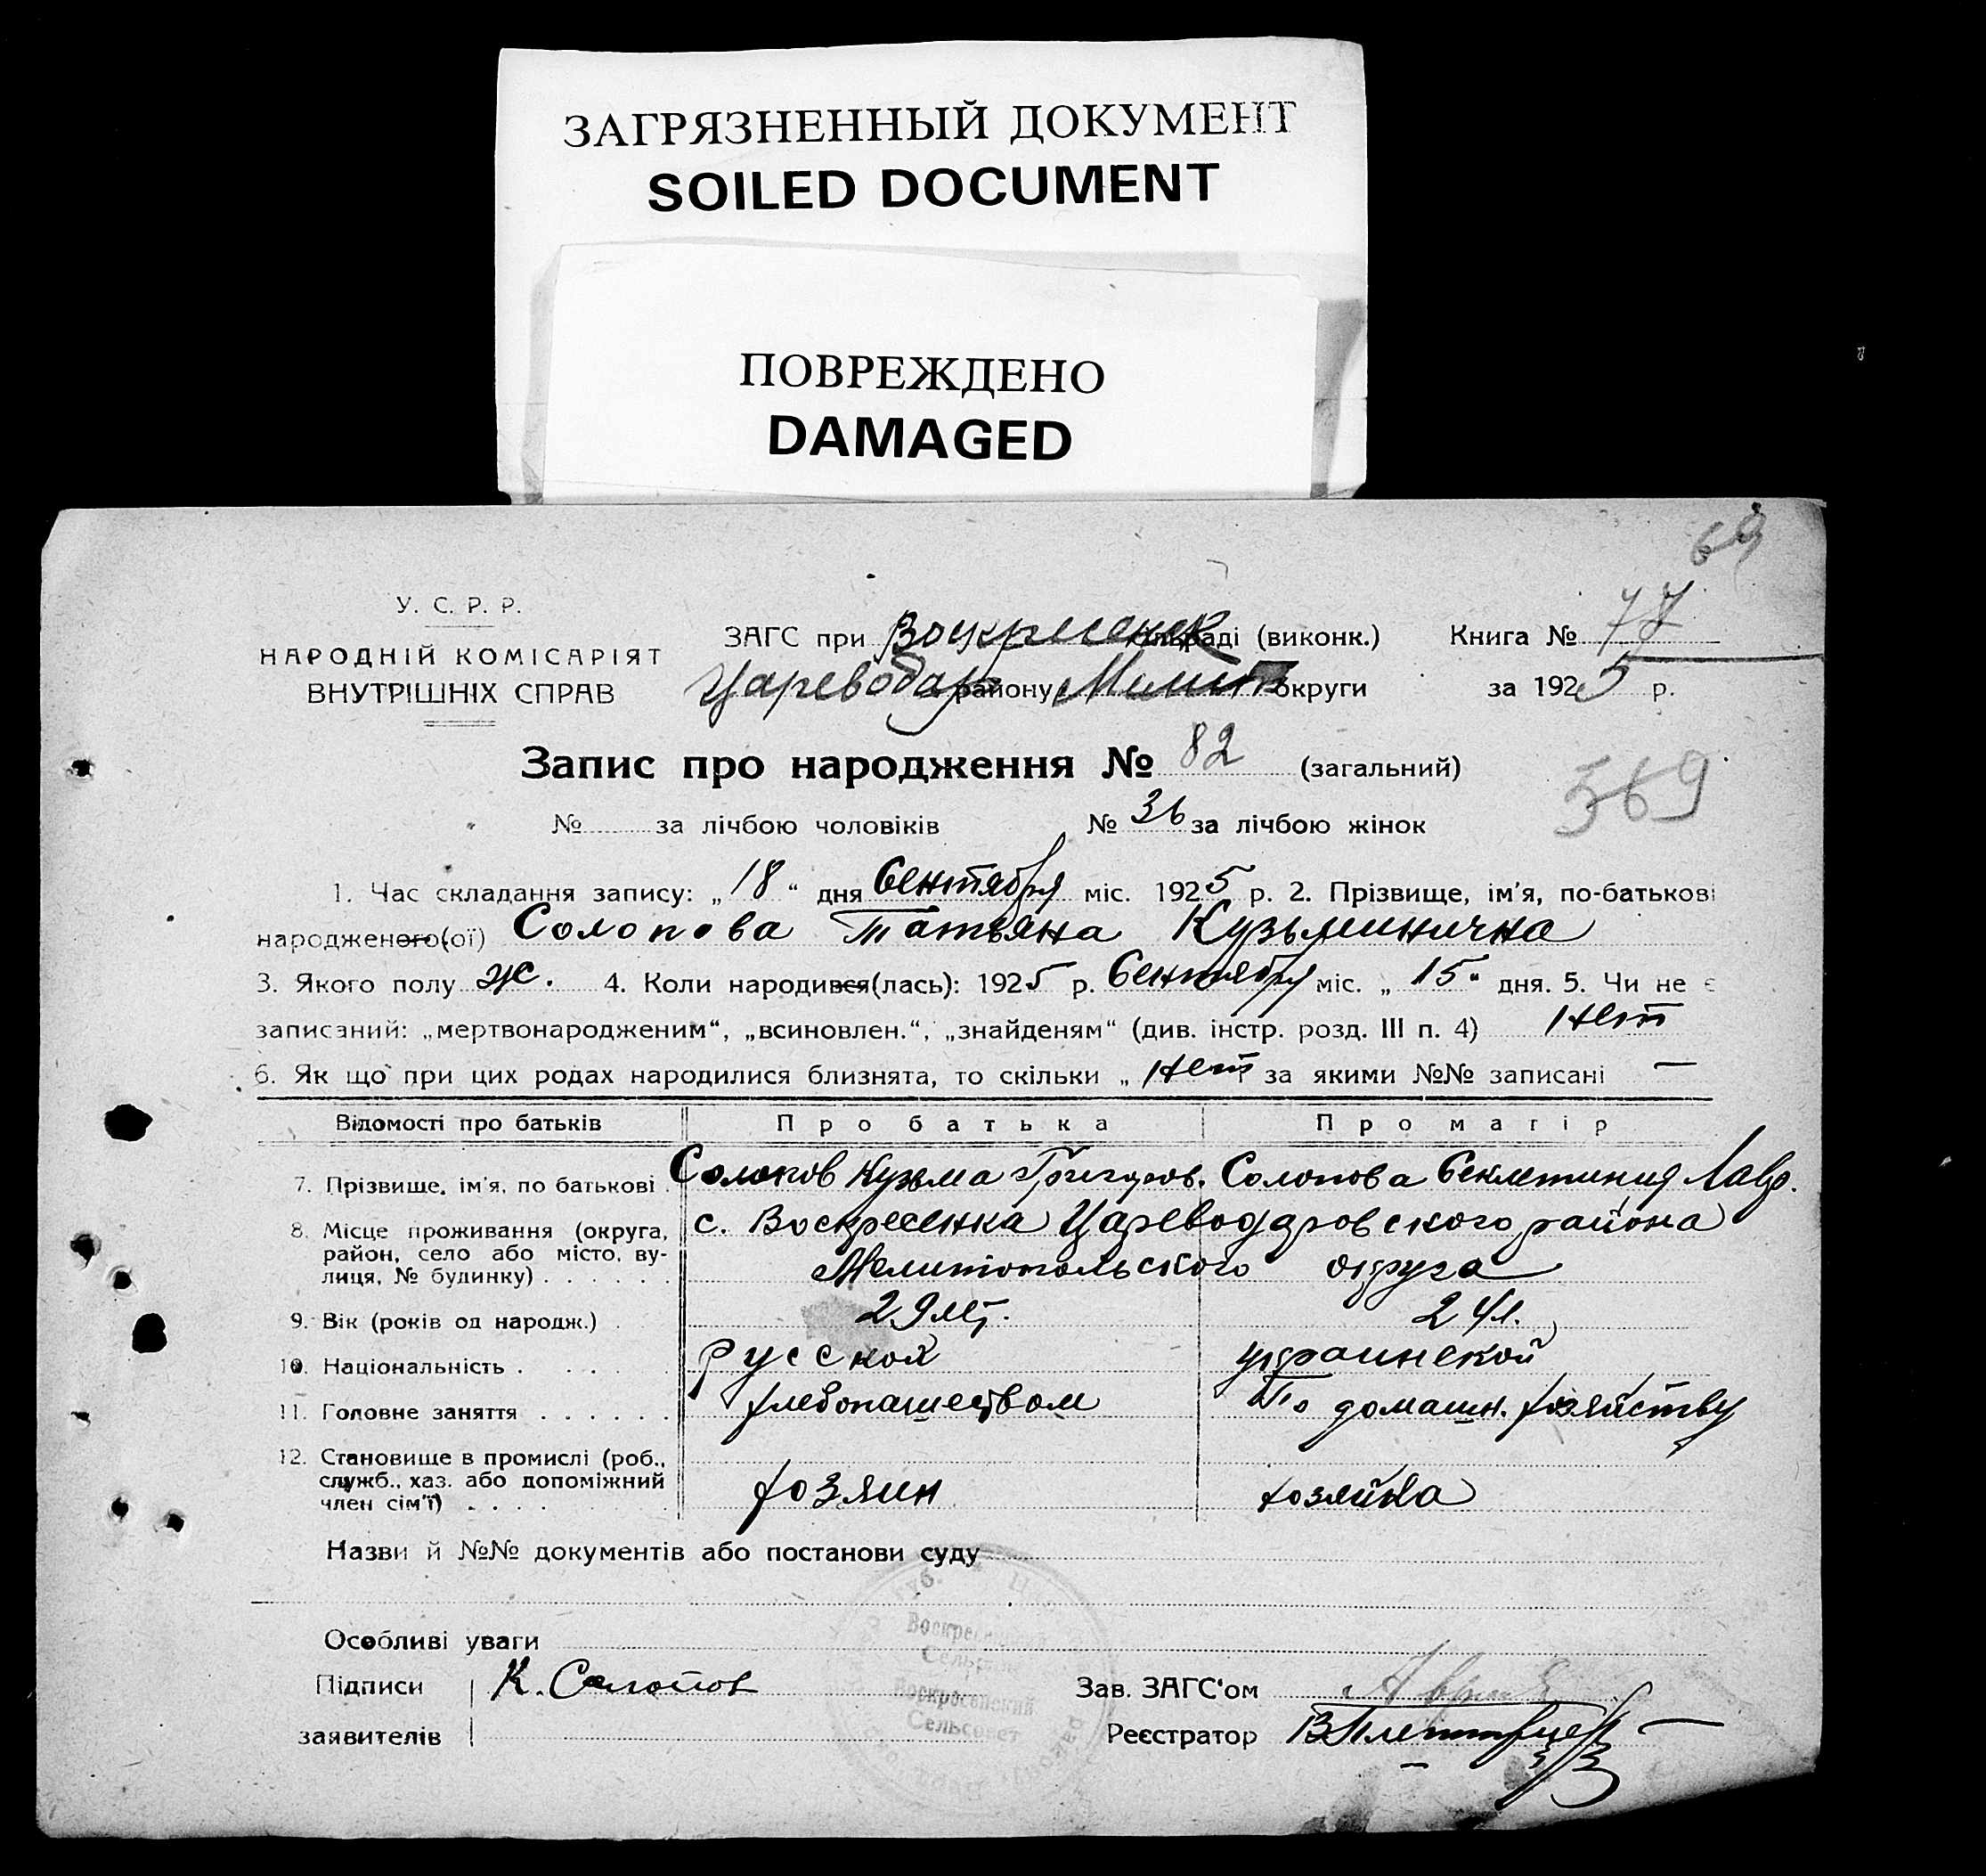 ЗАГРЯЗНЕННЫЙ ДОКУМЕНТ
SOILED DOCUMENT
ПОВРЕЖДЕНО
DAMAGED
69
У. С. Р. Р.
НАРОДНІЙ КОМІСАРІЯТ
ВНУТРІШНІХ СПРАВ
ЗАГС при Воскресенск сільраді (виконк.) Книга № 77
Цареводар району Мелит округи за 1925 р.
Запис про народження № 82 (загальний)
569
№ за лічбою чоловіків № 36 за лічбою жінок
1. Час складання запису: „18“ дня Сентября міс. 1925 р. 2. Прізвище, ім'я, по-батькові
народженого(ої) Солопова Татьяна Кузьминична
3. Якого полу ж. 4. Коли народився(лась): 1925 р. Сентября міс. „15“ дня. 5. Чи не є
записаний: „мертвонародженим“, „всиновлен.“, „знайденям“ (див. інстр. розд. III п. 4) Нет
6. Як що при цих родах народилися близнята, то скільки „ Нет за якими №№ записані —
Відомості про батьків Про батька Про матір
7. Прізвище, ім'я, по батькові . Солопов Кузьма Григоров. Солопова Секлетиния Лавр.
8. Місце проживання (округа, с. Воскресенка Цареводаровского района
район, село або місто, ву-
лиця, № будинку) . . . . . . Мелитопольского округа
9. Вік (років од народж.) . 29 лет. 24 л.
10. Національність . . . . . Русской украинской
11. Головне заняття . . . . . . хлебопашеством По домашн. хозяйству
12. Становище в промислі (роб.,
служб., хаз. або допоміжний
член сім'ї) . . . . хозяин хозяйка
Назви й №№ документів або постанови суду
Особливі уваги
Воскресенский
Сельсовет
Підписи К. Солопов Зав. ЗАГС'ом
заявителів Реєстратор